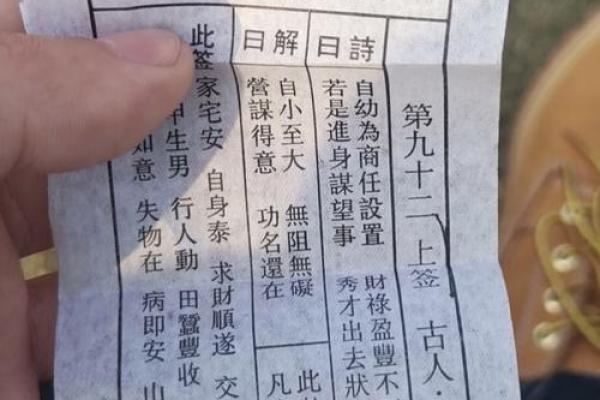 第九十二 上签 古人·
詩曰
自幼為商任設置 財祿盈豐不
若是進身謀望事 秀才出去狀
解曰
自小至大 無阻無礙
營謀得意 功名還在
此
凡
此签家宅安 自身泰 求財順遂 交
甲生男 行人動 田蠶豐收
如意 失物在 病即安 山